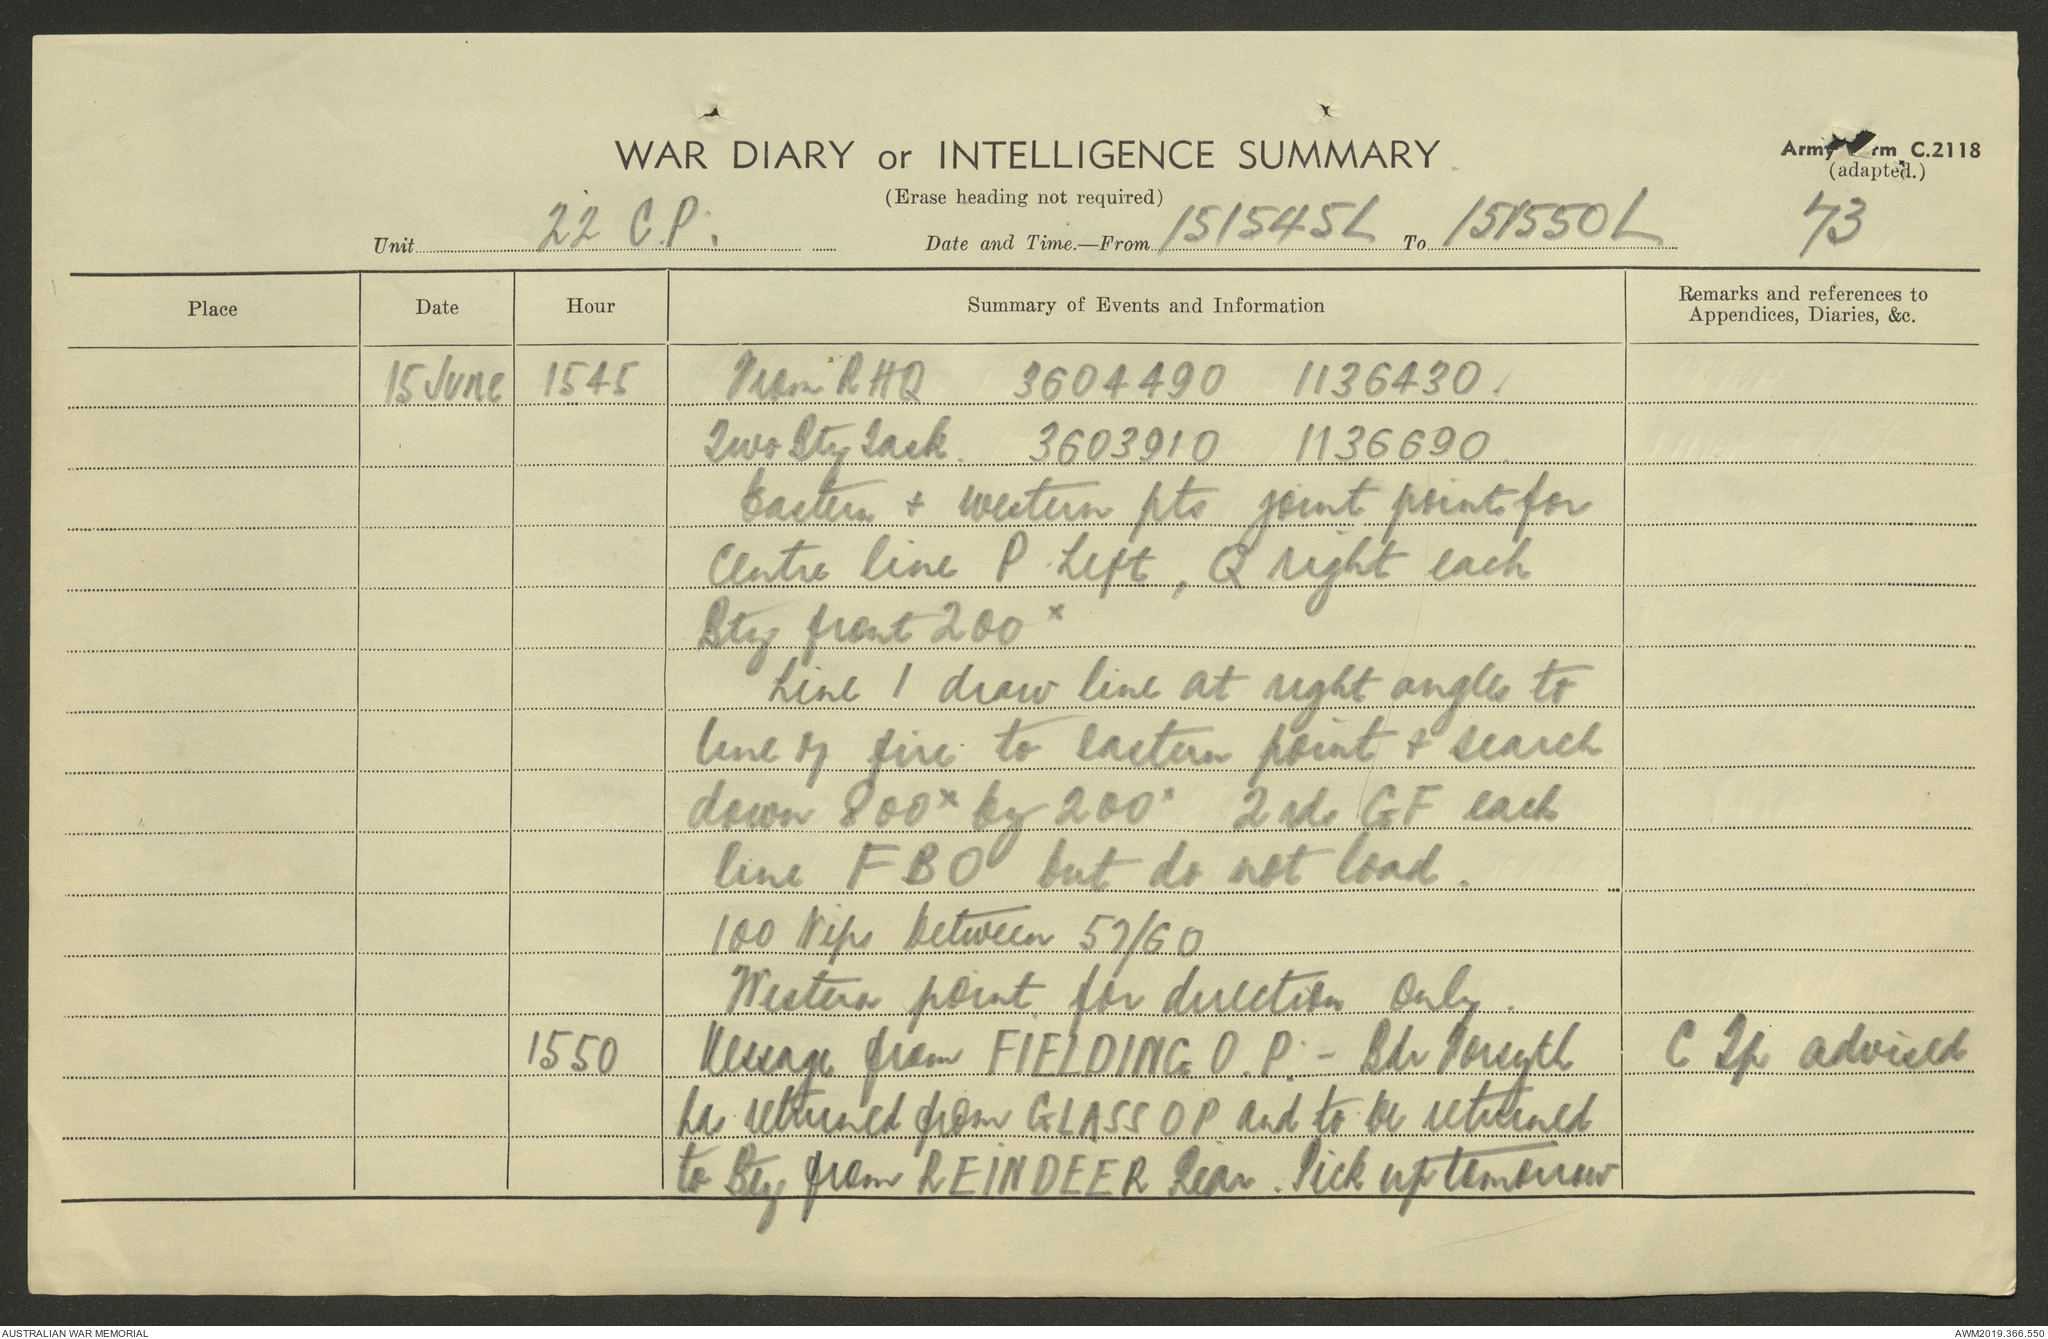 WAR DIARY or INTELLIGENCE SUMMARY
(Erase heading not required)
Army Form C.2118
(adapted.)
73
Unit 22 C.P. Date and Time.—From 151545L To 151550L
Place Date Hour Summary of Events and Information Remarks and references to Appendices, Diaries, &c.
15 June 1545 From RHQ 3604490 1136430.
Two Bty Task. 3603910 1136690.
Eastern + western pts joint points for
Centre line P Left, Q right each
Bty front 200x
Line 1 draw line at right angles to
line of fire to eastern point + search
down 800x by 200x 2 rds GF each
line FBO but do not load.
100 between 57/60
Western point for direction only.
1550 Message from FIELDING O.P. - Bdr Forsyth C Tp advised
has returned from GLASS OP and to be returned
to Bty from REINDEER Rear. Pick up tomorrow
AUSTRALIAN WAR MEMORIAL
AWM2019.366.550